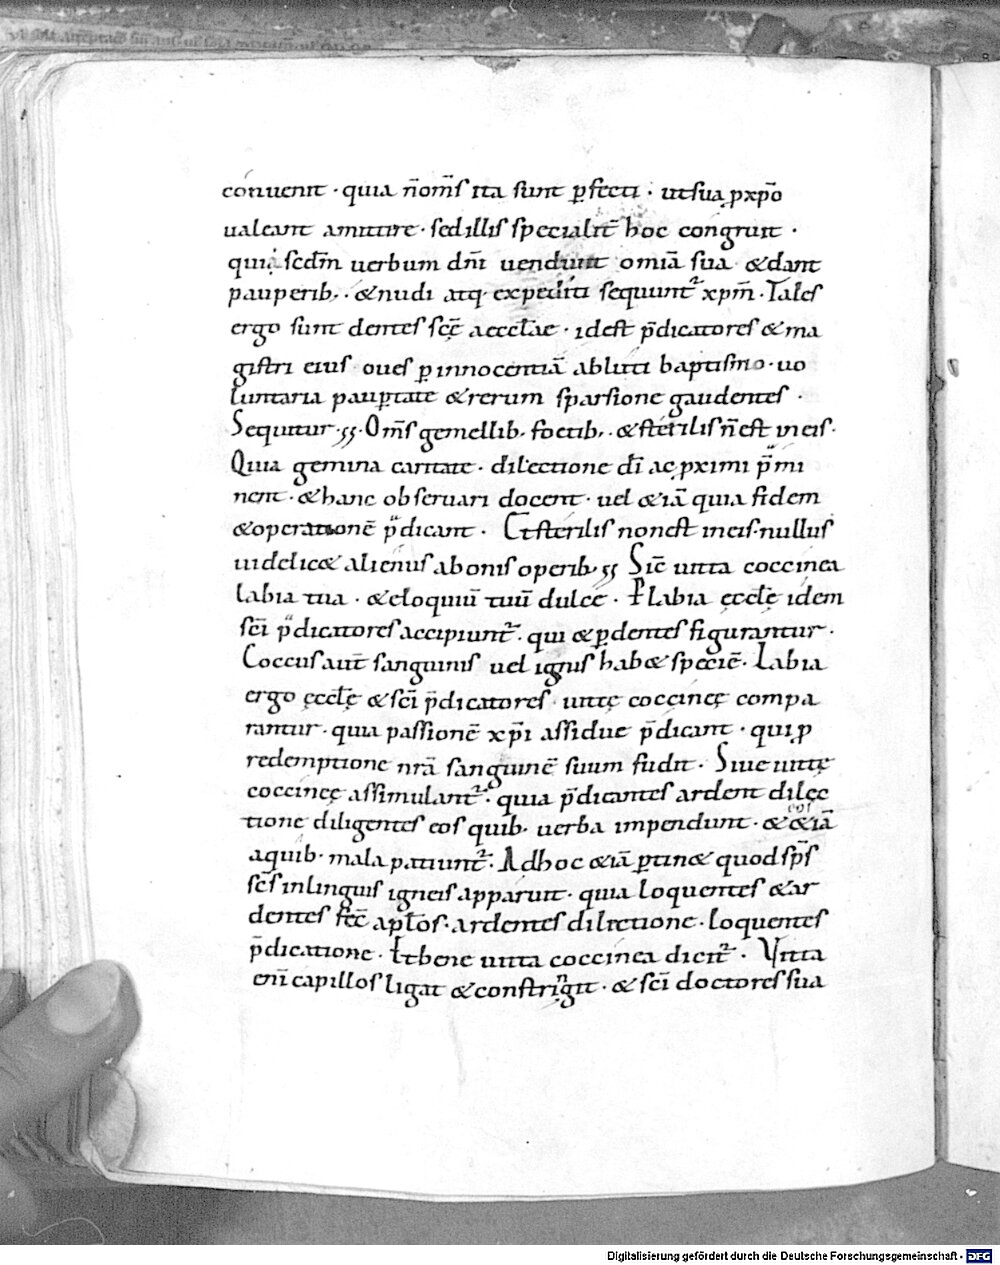 conuenit · quia n̄ om̄s ita sunt ꝑfecti · ut sua ꝓ xp̄o
ualeant amittere · sed illis specialit̄ hoc congruit ·
quia sc̄dm uerbum dn̄i uendunt omīa sua & dant
pauperib; · & nudi atq· expediti sequunt᷑ xp̄m · Tales
ergo sunt dentes sc̄ę aeccl̄ae · id est p̄dicatores & ma
gistri eius oues ꝑ innocentiā abluti baptismo · uo
luntaria pauꝑtate & rerum sparsione gaudentes ·
Sequitur · Om̄s gemellib; foetib; · & sterilis n̄ est in eis ·
Quia gemina caritate · dilectione dī ac ꝓximi p̄mi
nent · & hanc obseruari docent · uel &iā quia fidem
& operationē p̄dicant · Et sterilis non est in eis · nullus
uidelic& alienus a bonis operib; Sic̄ uitta coccinea
labia tua · & eloquiū tuū dulce · P̱ labia ęccl̄ę idem
sc̄i p̄dicatores accipiunt᷑ · qui & ꝑ dentes figurantur ·
Coccus aut̄ sanguinis uel ignis hab& speciē · Labia
ergo ęccl̄ę & sc̄i p̄dicatores uittę coccinęę compa
rantur · quia passionē xp̄i assidue p̄dicant · qui ꝓ
redemptione nr̄a sanguinē suum fudit · Siue uittę
coccinęę assimulant᷑ · quia p̄dicantes ardent dilec
tione diligentes eos quib; uerba impendunt · & eos &iā
a quib; mala patiunt᷑ · Ad hoc &iā ꝑtin& quod sp̄s
sc̄s in linguis igneis apparuit · quia loquentes & ar
dentes fec̄ apl̄os · ardentes dilectione · loquentes
p̄dicatione · Et bene uitta coccinea dicit᷑ · Vitta
eni̅ capillos ligat & constringit · & sc̄i doctores sua
Digitalisierung gefördert durch die Deutsche Forschungsgemeinschaft - DFG